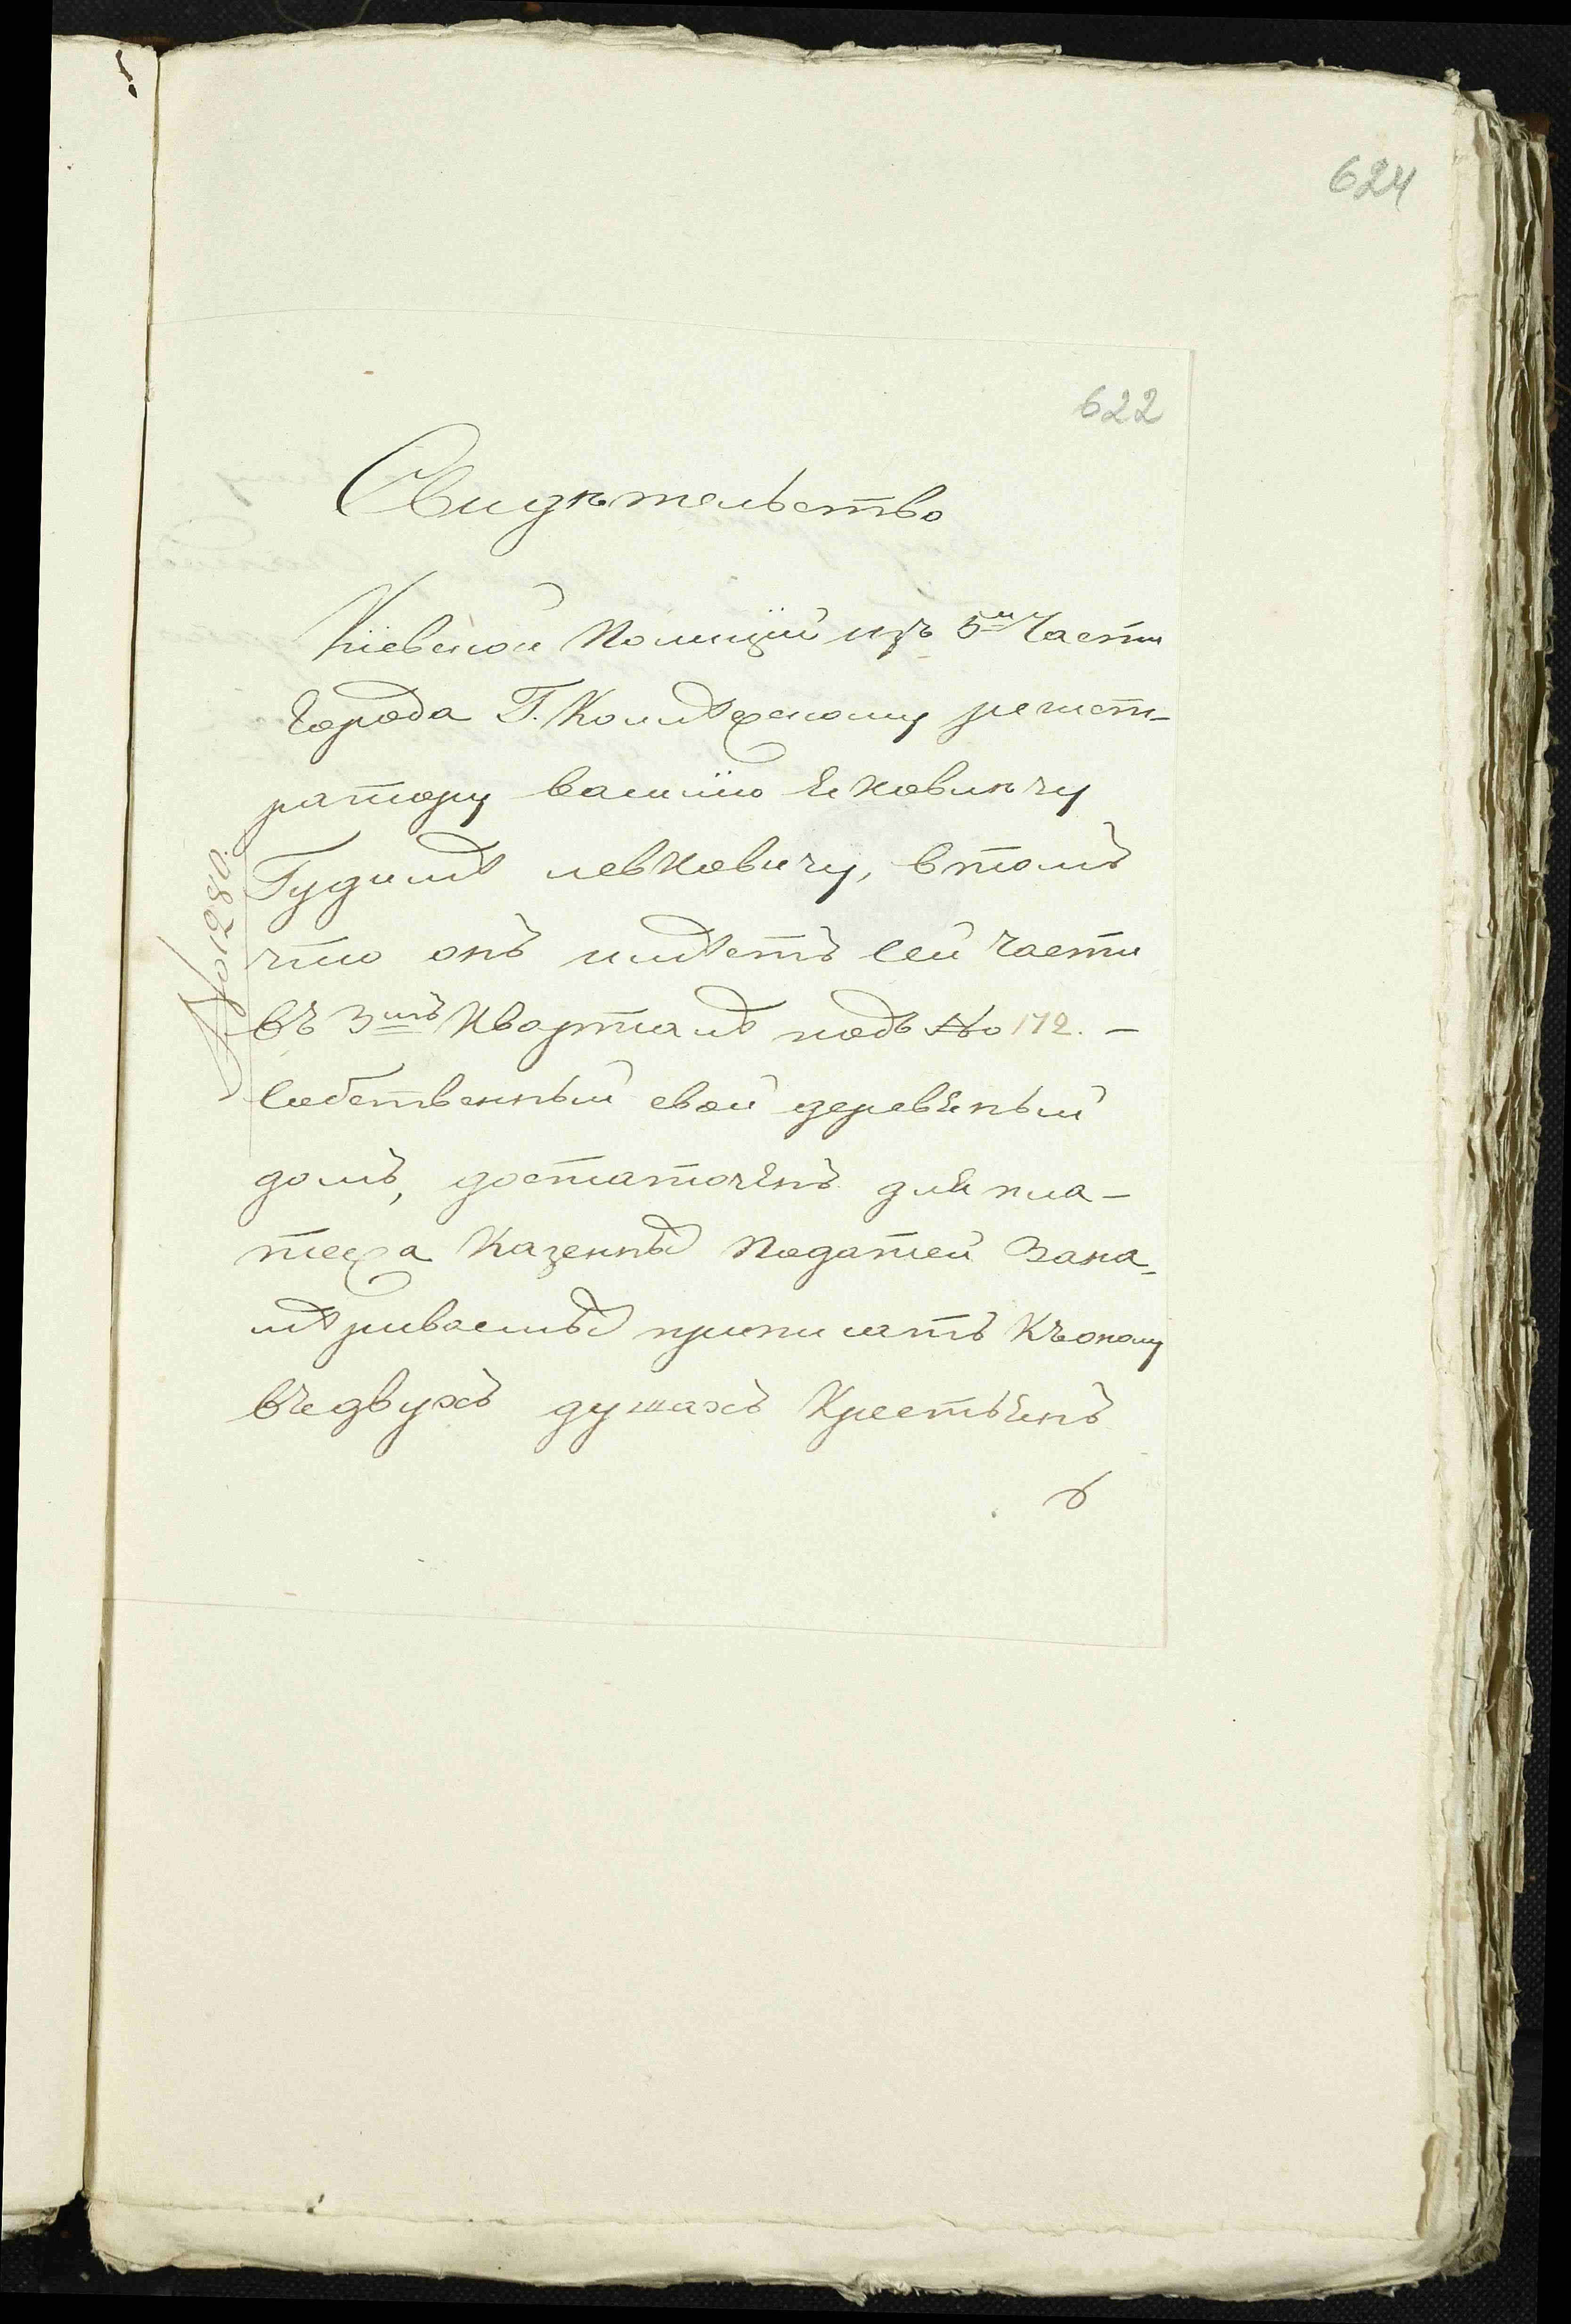 624
622
Свидѣтельство
Кіевской Полиціи изъ 5й Части
Города Г. Коллѣжскому регист-
ратору василію Яковичу
Гудимѣ левковичу, втомъ
что онъ имѣетъ сей части
въ 3мъ Кварталѣ подъ No 172. –
собственный свой деревяный
домъ, достаточенъ для пла-
тежа Казенныхъ Податей Зана-
мѣриваемыхъ приписать Къоному
въдвухъ душахъ Крестьянъ
No 1980.